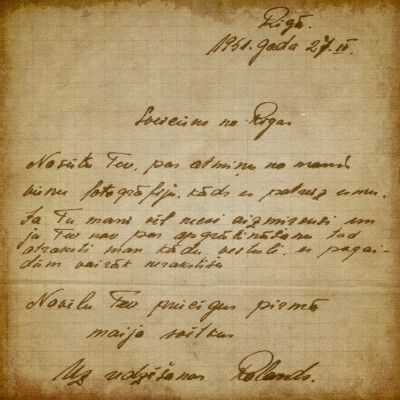 Rīgā.
1951. gada 27. IV.
Sveiciens no Rīgas
Nosūtu Tev, par atmiņu no manis
vienu fotogrāfiju, kāds es patreiz esmu.
Ja Tu mani vēl neesi aizmirsusi un
ja Tev nav par apgrūtināšanu tad
atraksti man kādu vēstuli, es pagai-
dām vairāk nerakstīšu
Novēlu Tev priecīgus pirmā
maija svētkus
Uz redzēšanos Rolands.